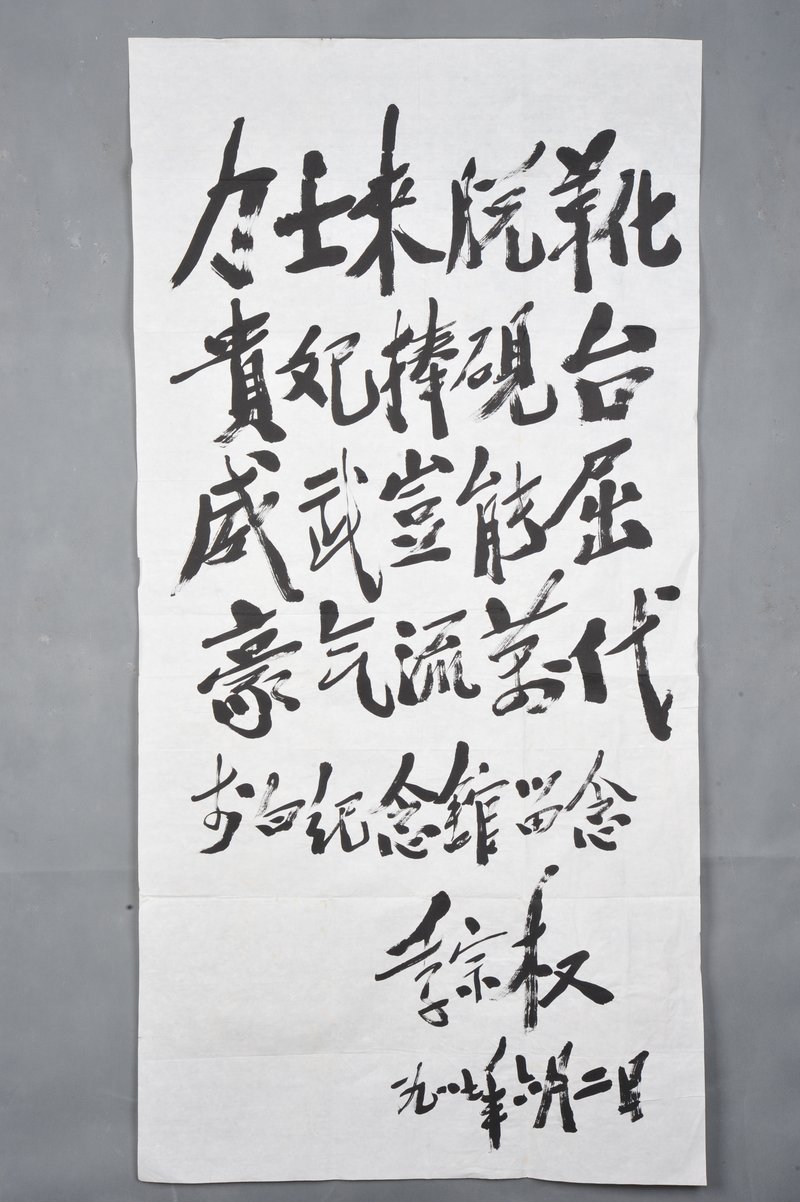 力士来脱靴
貴妃捧硯台
威武豈能屈
豪气流萬代
李白纪念館留念
李宗权
一九八七年六月二日